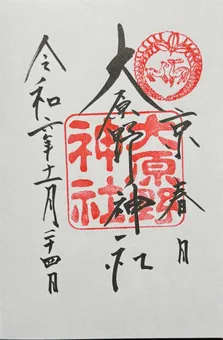 京春日
大原野神社
大原野神社
令和六年十一月二十四日